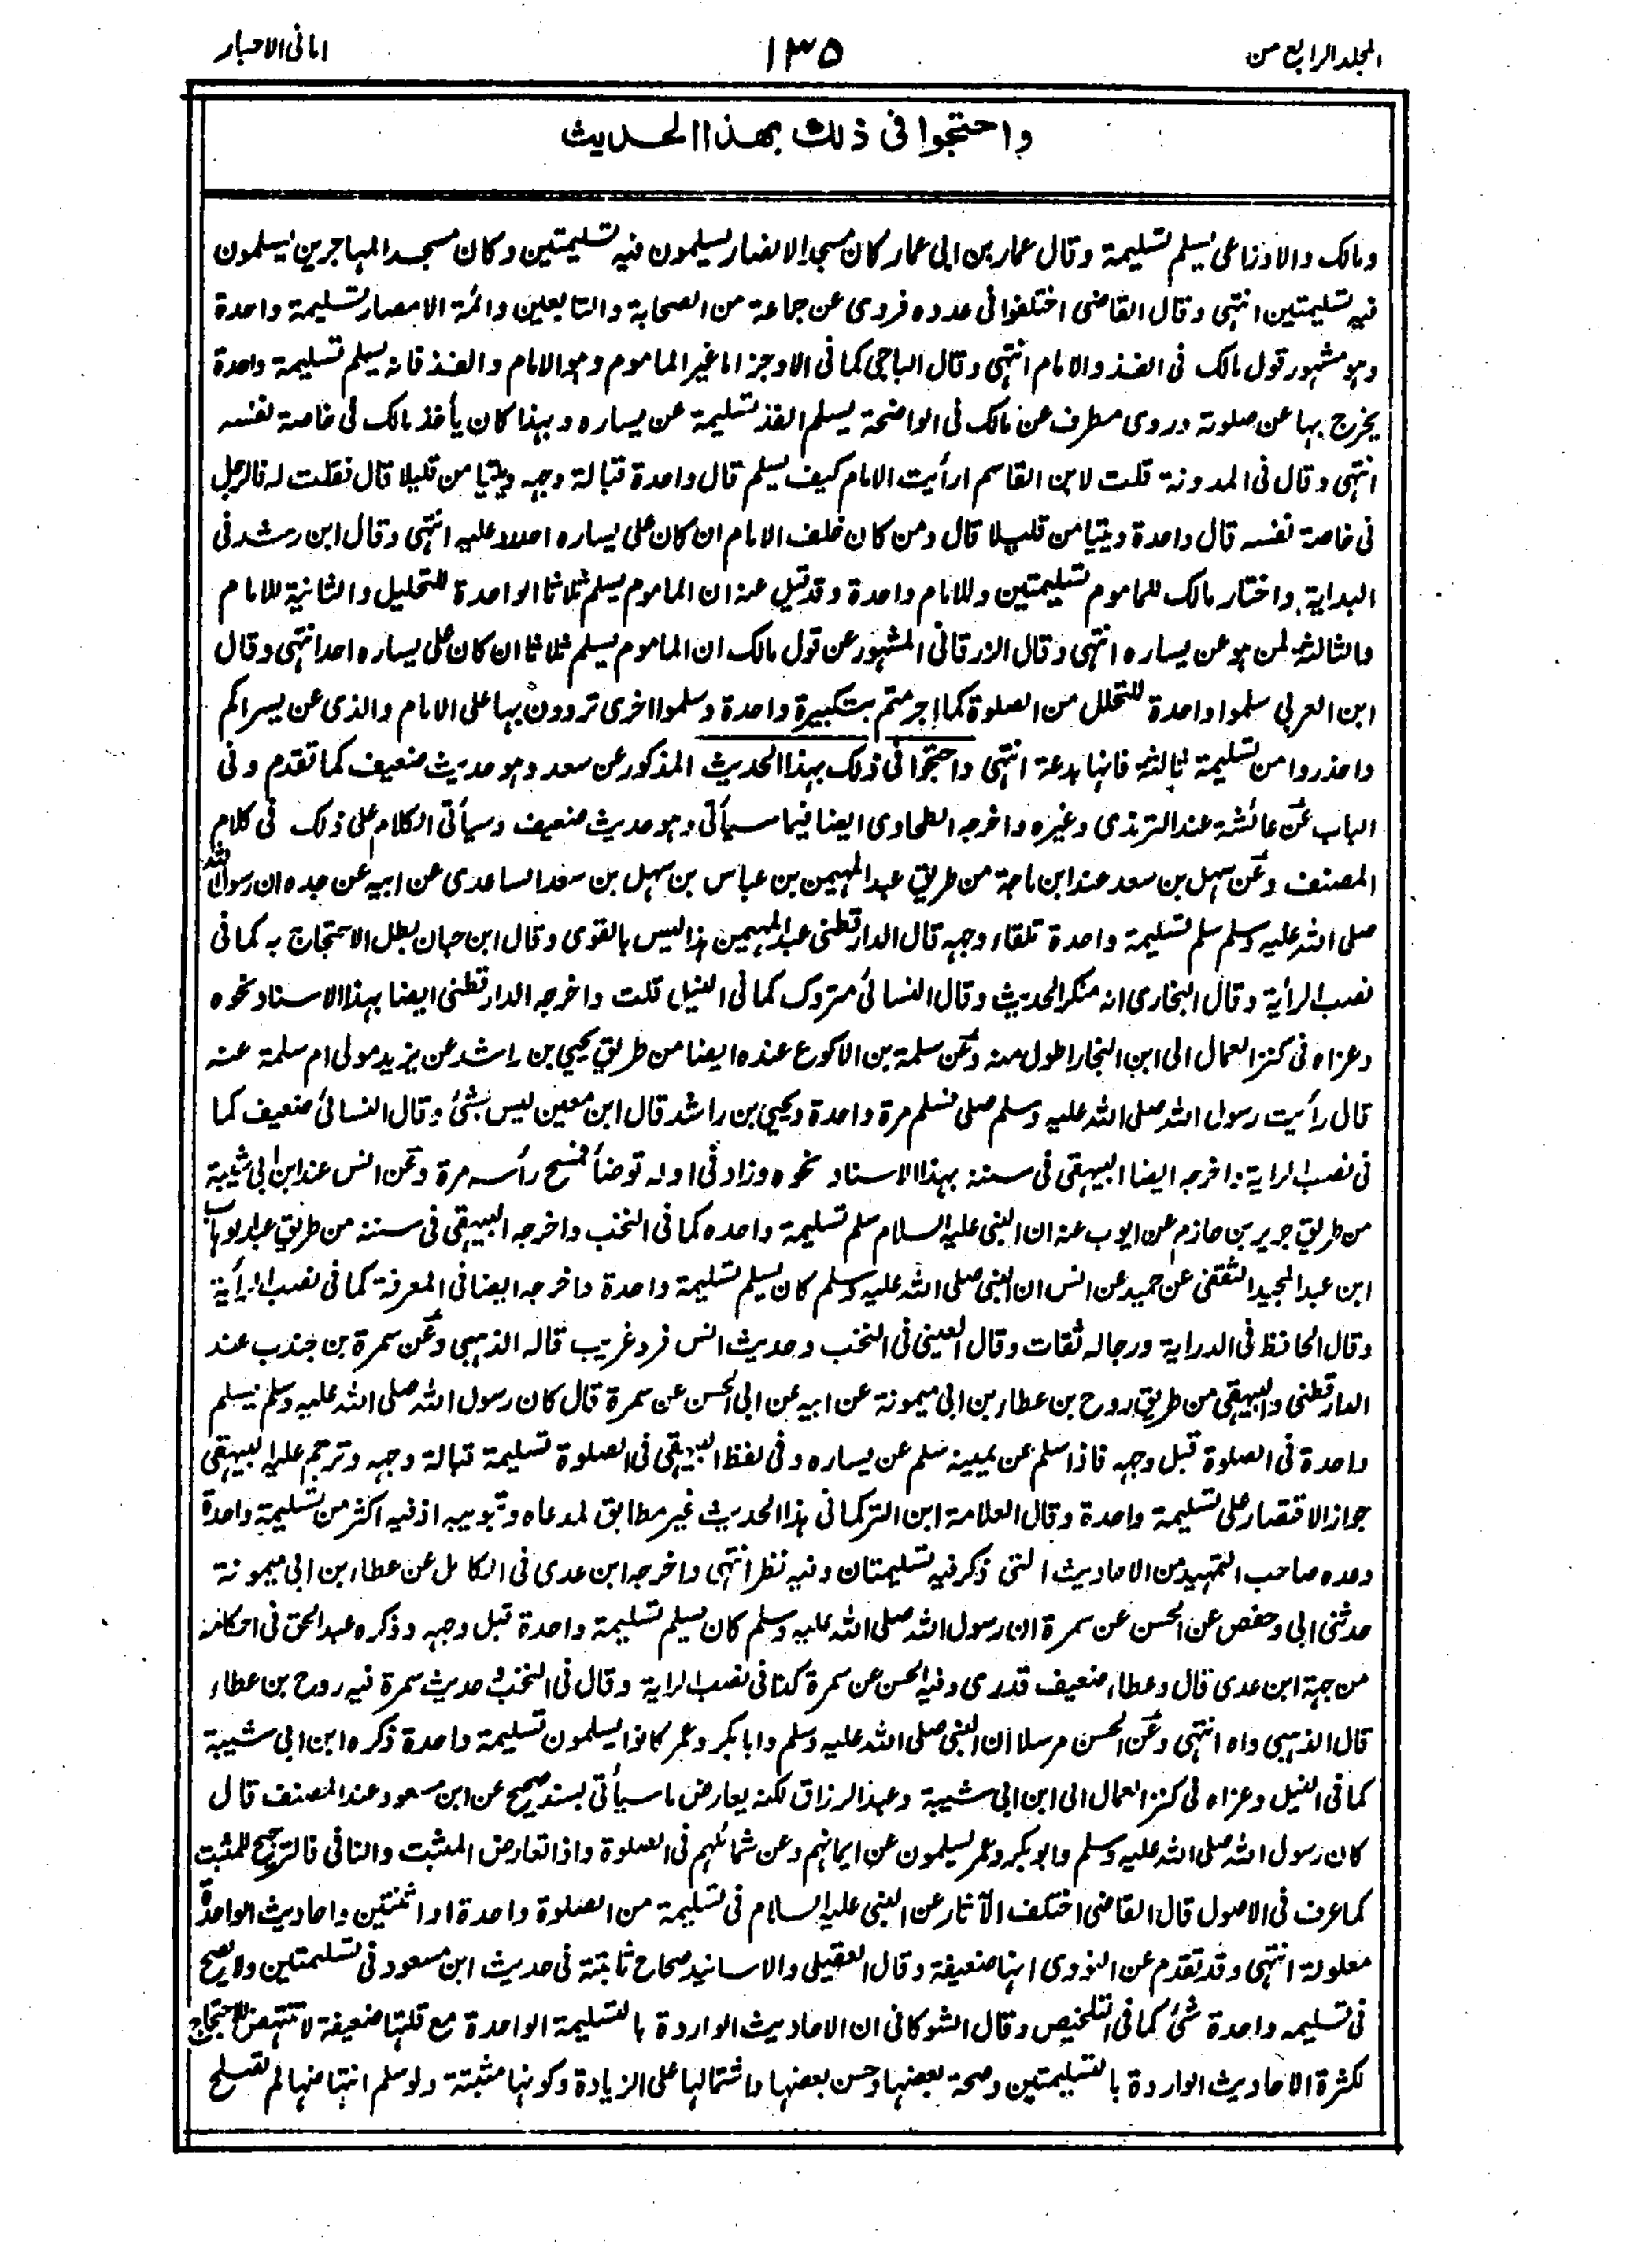 المجلد الرابع من
١٣٥
امانی الاحبار
واحتجوا فی ذلك بهذا الحدیث
ومالک والاوزاعی یسلم تسلیمة وقال عمار بن ابی عمار کان مسجد الانصار یسلمون فیه تسلیمتین وکان مسجد المہاجرین یسلمون
فیه تسلیمتین انتہی وقال القاضی اختلفوا فی عدده فروی عن جماعة من الصحابة والتابعین وائمة الامصار تسلیمة واحدة
وہو مشہور قول مالک فی الفذ والامام انتہی وقال الباجی کما فی الاوجز اما غیر الماموم وہو الامام والفذ فانه یسلم تسلیمة واحدة
یخرج بہا عن صلوته وروی مطرف عن مالک فی الواضحة یسلم الفذ تسلیمة عن یساره وبہذا کان یأخذ مالک فی خاصة نفسه
انتہی وقال فی المدونة قلت لابن القاسم ارأیت الامام کیف یسلم قال واحدة قبالة وجہه ویتیامن قلیلا قال فقلت له فالرجل
فی خاصة نفسه قال واحدة ویتیامن قلیلا قال ومن کان خلف الامام ان کان علی یساره احد رد علیه انتہی وقال ابن رشد فی
البدایة واختار مالک للماموم تسلیمتین وللامام واحدة وقد قیل عنه ان الماموم یسلم ثلاثا الواحدة للتحلیل والثانیة للامام
والثالثة لمن ہو عن یساره انتہی وقال الزرقانی المشہور عن قول مالک ان الماموم یسلم ثلاثا ان کان علی یساره احد انتہی وقال
ابن العربی سلموا واحدة للتحلل من الصلوة کما احرمتم بتکبیرة واحدة وسلموا اخری تردون بہا علی الامام والذی عن یسراکم
واحذروا من تسلیمة ثالثة فانہا بدعة انتہی واحتجوا فی ذلک بہذا الحدیث المذکور عن سعد وہو حدیث ضعیف کما تقدم وفی
الباب عن عائشة عند الترمذی وغیره واخرجه الطحاوی ایضا فیما سیأتی وہو حدیث ضعیف وسیأتی الکلام علی ذلک فی کلام
المصنف وعن سہل بن سعد عند ابن ماجة من طریق عبد المہیمن بن عباس بن سہل بن سعد الساعدی عن ابیه عن جده ان رسول الله
صلی الله علیه وسلم سلم تسلیمة واحدة تلقاء وجہه قال الدارقطنی عبد المہیمن ہذا لیس بالقوی وقال ابن حبان بطل الاحتجاج به کما فی
نصب الرأیة وقال البخاری انه منکر الحدیث وقال النسائی متروک کما فی النیل قلت واخرجه الدارقطنی ایضا بہذا الاسناد نحوه
وعزاه فی کنز العمال الی ابن النجار اطول منه وعن سلمة بن الاکوع عنده ایضا من طریق یحیی بن راشد عن یزید مولی ام سلمة عنه
قال رأیت رسول الله صلی الله علیه وسلم صلی فسلم مرة واحدة ویحیی بن راشد قال ابن معین لیس بشئ وقال النسائی ضعیف کما
فی نصب الرایة واخرجه ایضا البیہقی فی سننه بہذا الاسناد نحوه وزاد فی اوله توضأ فمسح رأسه مرة وعن انس عند ابن ابی شیبة
من طریق جریر بن حازم عن ایوب عنه ان النبی علیه السلام سلم تسلیمة واحده کما فی النخب واخرجه البیہقی فی سننه من طریق عبد الوہاب
ابن عبد المجید الثقفی عن حمید عن انس ان النبی صلی الله علیه وسلم کان یسلم تسلیمة واحدة واخرجه ایضا فی المعرفة کما فی نصب الرأیة
وقال الحافظ فی الدرایة ورجاله ثقات وقال العینی فی النخب وحدیث انس فرد غریب قاله الذہبی وعن سمرة بن جندب عند
الدارقطنی والبیہقی من طریق روح بن عطاء بن ابی میمونة عن ابیه عن ابی الحسن عن سمرة قال کان رسول الله صلی الله علیه وسلم یسلم
واحدة فی الصلوة قبل وجہه فاذا سلم عن یمینه سلم عن یساره وفی لفظ البیہقی فی الصلوة تسلیمة قبالة وجہه وترجم علیه البیہقی
جواز الاقتصار علی تسلیمة واحدة وقال العلامة ابن الترکمانی ہذا الحدیث غیر مطابق لمدعاه وتبویبه اذ فیه اکثر من تسلیمة واحدة
وعده صاحب التمہید من الاحادیث التی ذکر فیه تسلیمتان وفیه نظر انتہی واخرجه ابن عدی فی الکامل عن عطاء بن ابی میمونة
حدثنی ابی وحفص عن الحسن عن سمرة ان رسول الله صلی الله علیه وسلم کان یسلم تسلیمة واحدة قبل وجہه وذکره عبد الحق فی احکامه
من جہة ابن عدی قال وعطاء ضعیف قدری وفیه الحسن عن سمرة کذا فی نصب الرایة وقال فی النخب حدیث سمرة فیه روح بن عطاء
قال الذہبی واه انتہی وعن الحسن مرسلا ان النبی صلی الله علیه وسلم وابا بکر وعمر کانوا یسلمون تسلیمة واحدة ذکره ابن ابی شیبة
کما فی النیل وعزاه فی کنز العمال الی ابن ابی شیبة وعبد الرزاق لکنه یعارض ما سیأتی بسند صحیح عن ابن مسعود عند المصنف قال
کان رسول الله صلی الله علیه وسلم وابو بکر وعمر یسلمون عن ایمانہم وعن شمائلہم فی الصلوة واذا تعارض المثبت والنافی فالترجیح للمثبت
کما عرف فی الاصول قال القاضی اختلف الآثار عن النبی علیه السلام فی تسلیمة من الصلوة واحدة او اثنتین واحادیث الواحدة
معلولة انتہی وقد تقدم عن النووی انہا ضعیفة وقال العقیلی والاسانید صحاح ثابتة فی حدیث ابن مسعود فی تسلیمتین ولا یصح
فی تسلیمه واحدة شئ کما فی التلخیص وقال الشوکانی ان الاحادیث الواردة بالتسلیمة الواحدة مع قلتہا ضعیفة لا تنتہض للاحتجاج
لکثرة الاحادیث الواردة بالتسلیمتین وصحة بعضہا وحسن بعضہا واشتمالہا علی الزیادة وکونہا مثبتة ولو سلم انتہاضہا لم تصلح